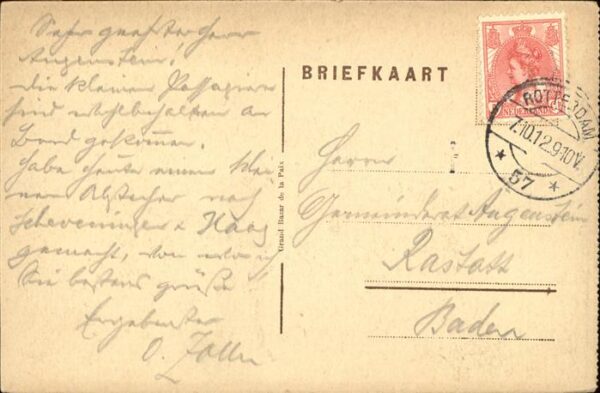 Sehr geehrter Herr
Augenstein!
Die kleinen Passagiere
sind wohlbehalten an
Bord gekommen.
Habe heute einen klei
nen Abstecher nach
Scheveningen & Haag
gemacht, von wo ich
Sie bestens grüße
Ergebenster
O. Zoller
Grand Bazar de la Paix
BRIEFKAART
NEDERLAND
ROTTERDAM
7.10.12.9-10V.
* 57 *
Herrn
Gemeinderat Augenstein
Rastatt
Baden